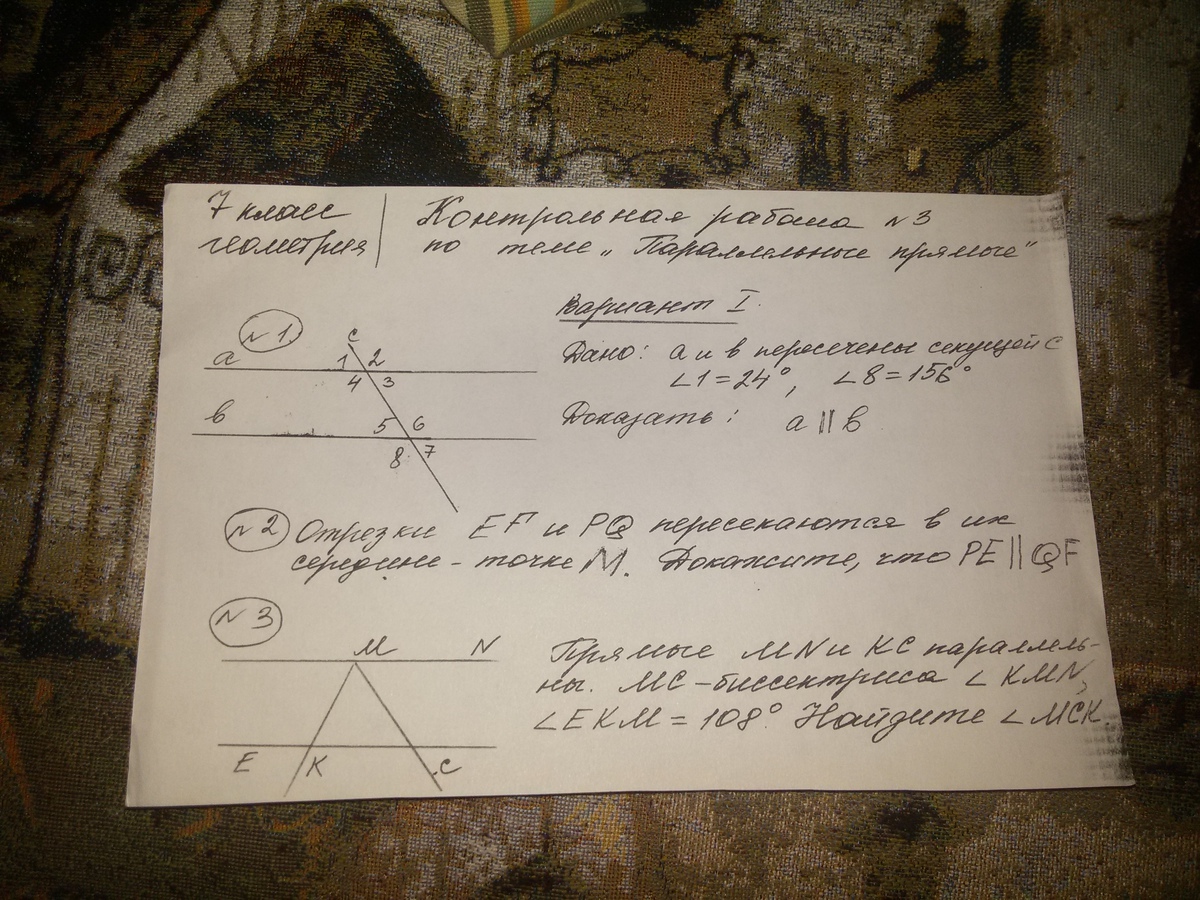 7 класс
геометрия
Контрольная работа №3
по теме „Параллельные прямые"
Вариант I.
№1.
c
a
1 2
4 3
b
5 6
8 7
Дано: a и b пересечены секущей c
∠1=24°, ∠8=156°
Доказать: a || b
№2 Отрезки EF и PQ пересекаются в их
середине - точке M. Докажите, что PE || QF
№3
M N
E K C
Прямые MN и KC параллель-
ны. MC - биссектриса ∠KMN,
∠EKM = 108°. Найдите ∠MCK.